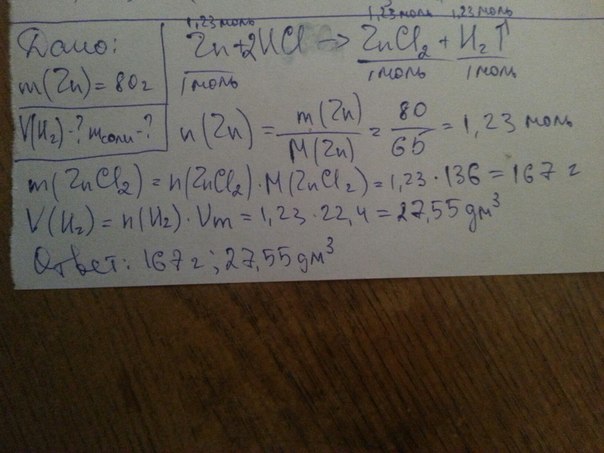 Дано:
m(Zn) = 80 г
V(H₂) - ? mсоли - ?
1,23 моль 1,23 моль 1,23 моль
Zn + 2HCl → ZnCl₂ + H₂↑
1 моль 1 моль 1 моль
n(Zn) = m(Zn)/M(Zn) = 80/65 = 1,23 моль
m(ZnCl₂) = n(ZnCl₂) · M(ZnCl₂) = 1,23 · 136 = 167 г
V(H₂) = n(H₂) · Vm = 1,23 · 22,4 = 27,55 дм³
Ответ: 167 г; 27,55 дм³